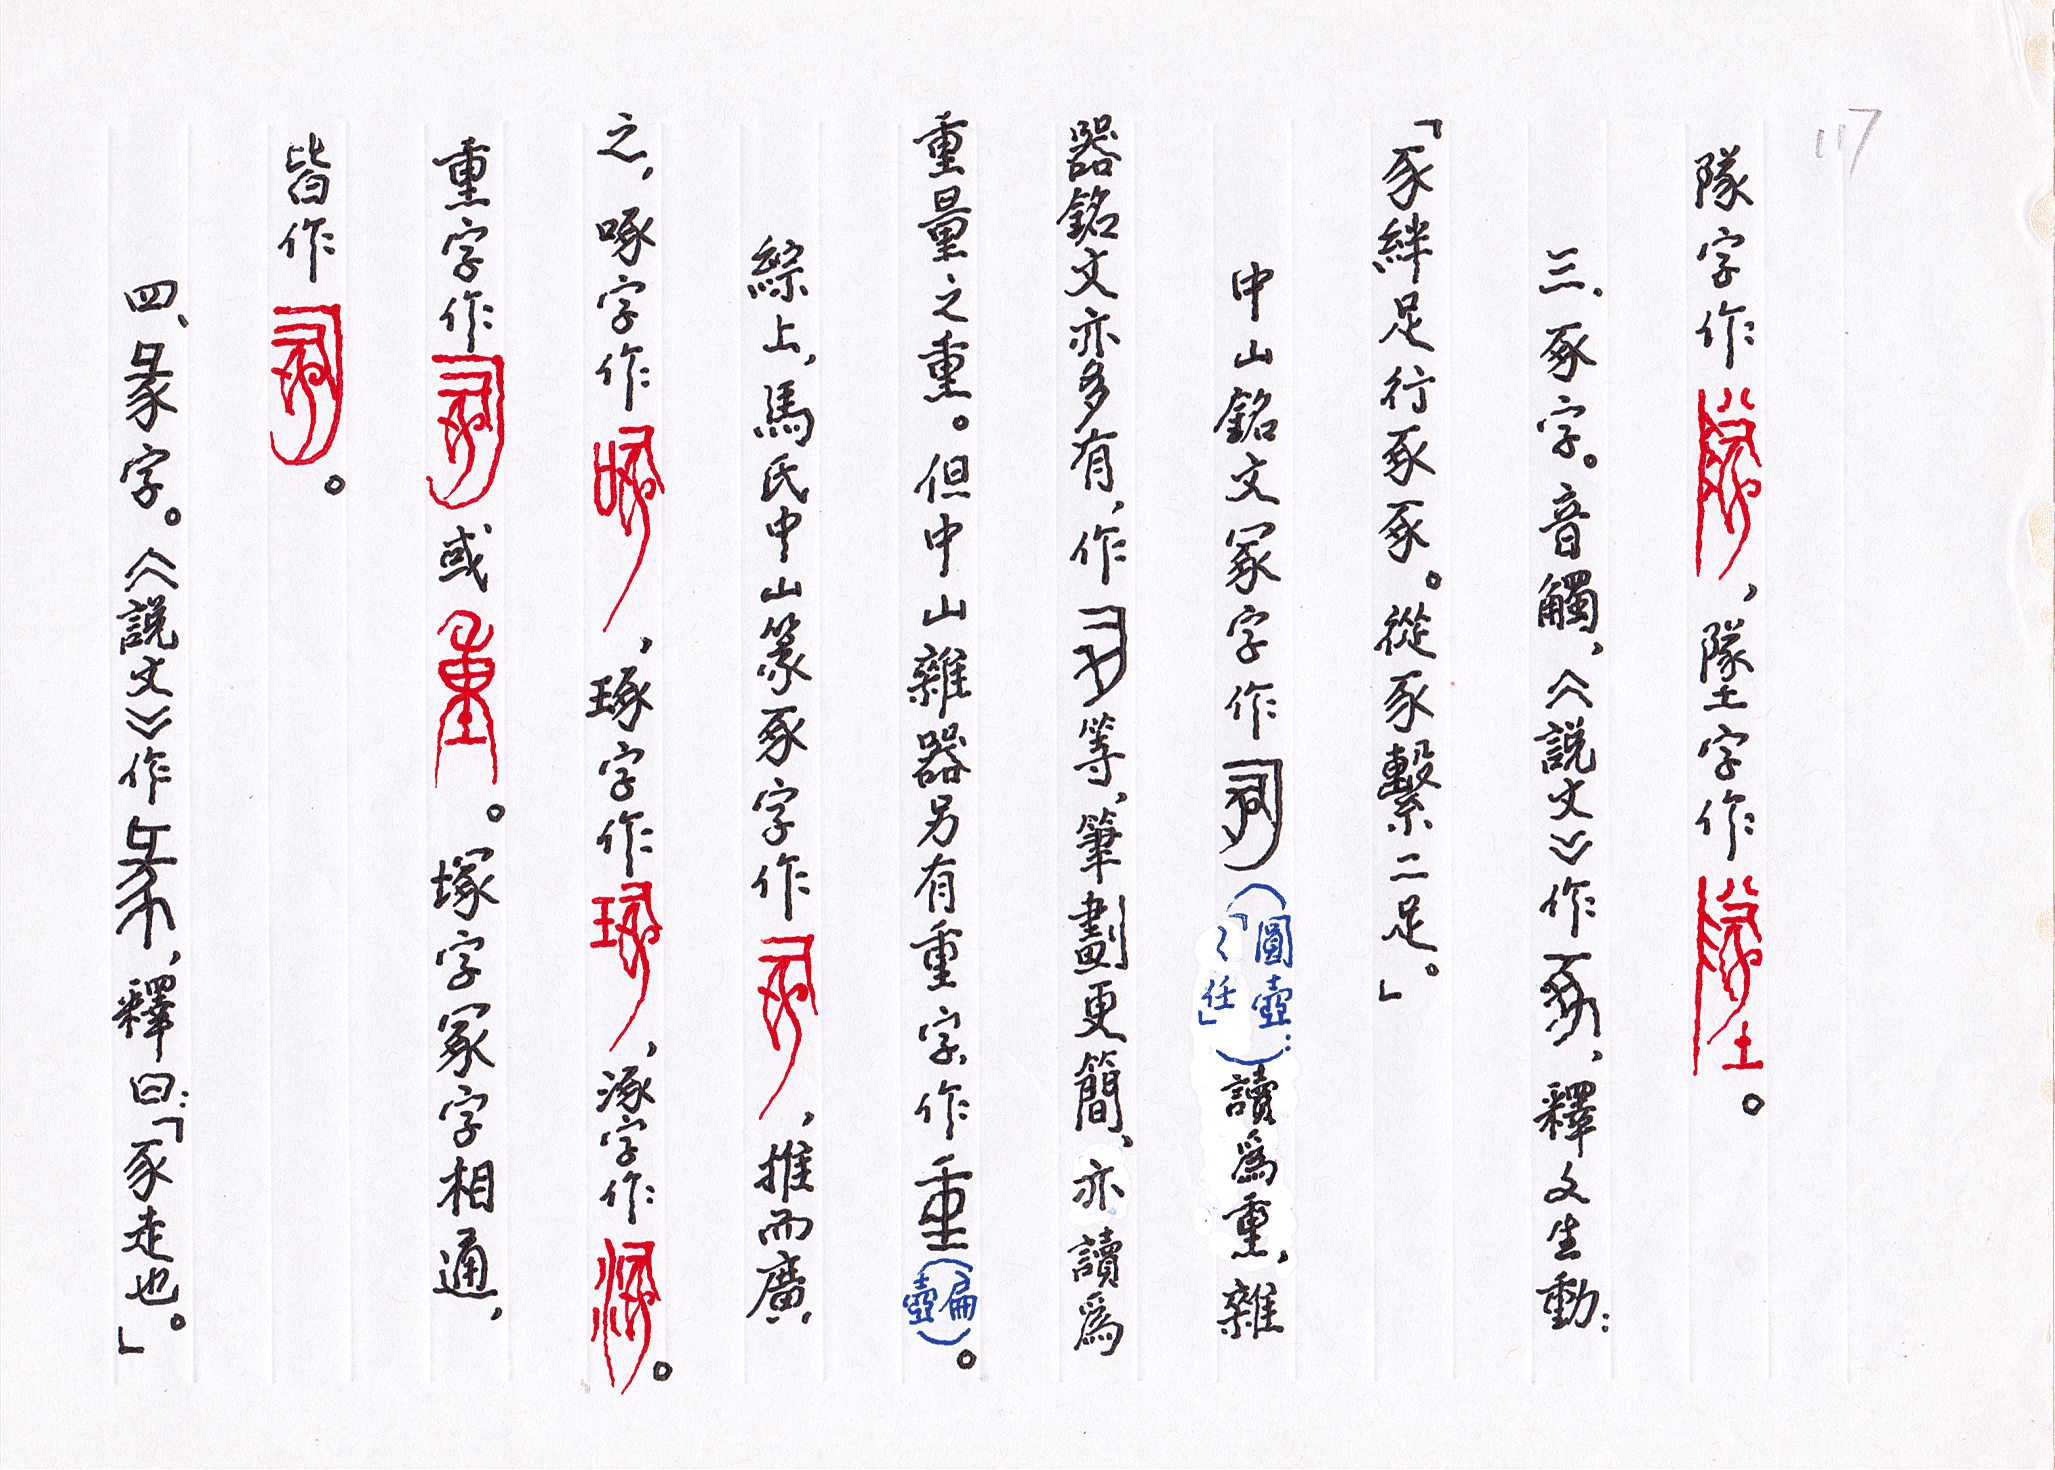 117
隊字作，墜字作。
三、豖字。音觸，《說文》作，釋文生動：
「豕絆足行豖豖。從豕繫二足。」
中山銘文冢字作（圓壺：「〻任」）讀爲重，雜
器銘文亦多有，作等，筆劃更簡，亦讀爲
重量之重。但中山雜器另有重字，作（扁壺）。
綜上，馬氏中山篆豖字作，推而廣
之，啄字作，琢字作，涿字作。
重字作或。塚字冢字相通，
皆作。
四、彖字。《說文》作，釋曰：「豕走也。」